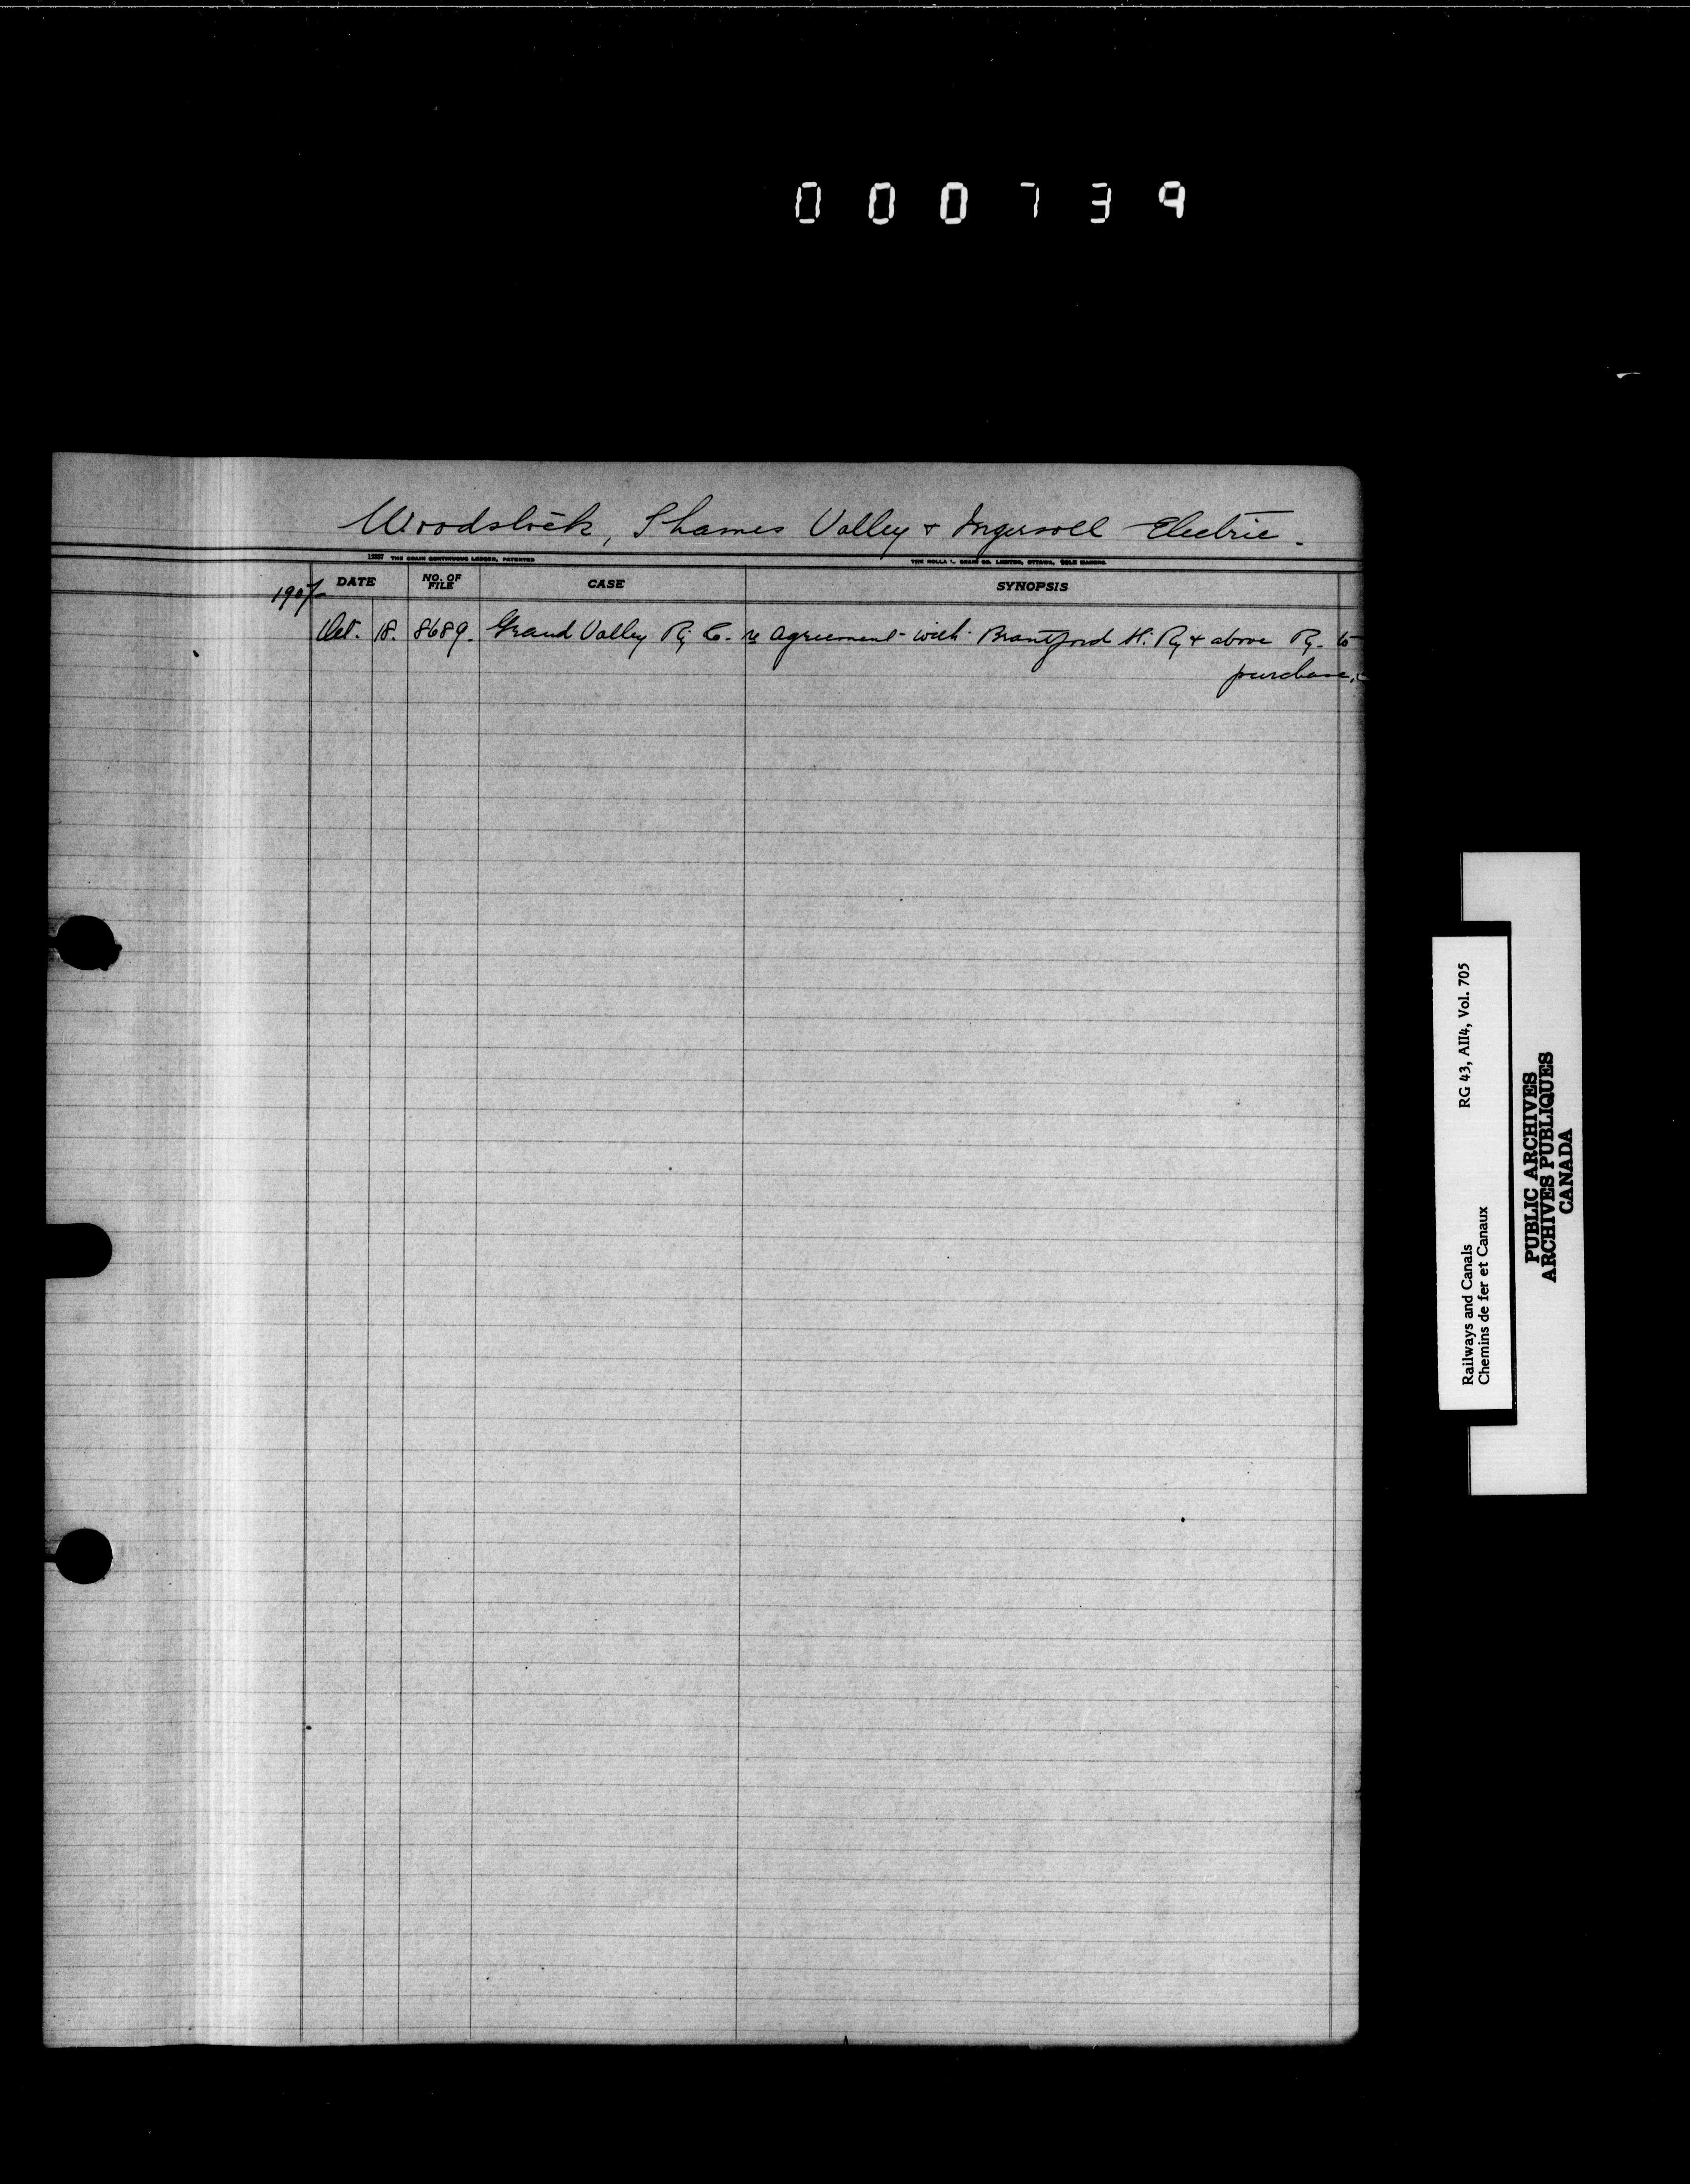 000739
Woodstock, Thames Valley & Ingersoll Electric.
13307 THE CRAIN CONTINUOUS LEDGER, PATENTED
THE ROLLA L. CRAIN CO. LIMITED, OTTAWA, SOLE MAKERS
1907 DATE NO. OF FILE CASE SYNOPSIS
Oct. 18. 8689. Grand Valley Ry Co. re agreement with Brantford St. Ry & above Ry. to
purchase,
RG 43, AII4, Vol. 705
Railways and Canals
Chemins de fer et Canaux
PUBLIC ARCHIVES
ARCHIVES PUBLIQUES
CANADA